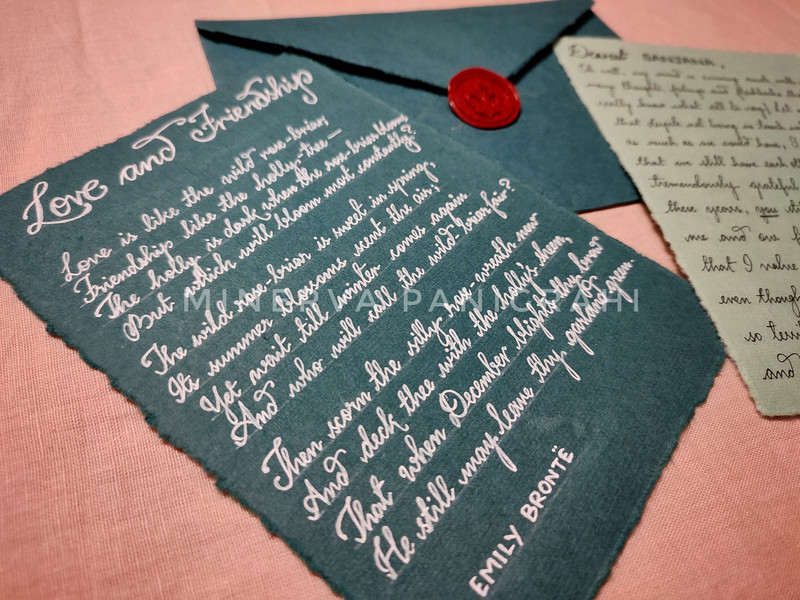 Love and Friendship
Love is like the wild rose-briar,
Friendship like the holly-tree—
The holly is dark when the rose-briar blooms
But which will bloom most constantly?
The wild rose-briar is sweet in spring,
Its summer blossoms scent the air;
Yet wait till winter comes again
And who will call the wild-briar fair?
Then scorn the silly rose-wreath now
And deck thee with the holly's sheen,
That when December blights thy brow
He still may leave thy garland green.
EMILY BRONTË
MINERVA PANIGRAHI
Dearest SANJANA,
many thoughts, feelings and flashbacks
really know what all to say!
that despite not being in touch
as much as we could have,
that we still have each
tremendously grateful
these years, you
me and our
that I value
even though
so
and